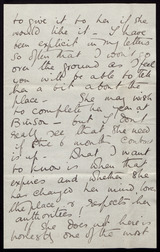 to give it to her if she
would like it - I have
been explicit in my letters
so often that I won't go
over the ground as I feel
you will be able to tell
her a bit about the
place - She may wish
to complete her year at
- but I don't
really see that she need
if the 6 months
is up - What I want
to know is when that
expires and whether she
has changed her mind, loves
the place & respects her
authorities!
If she does not here is
one of the most